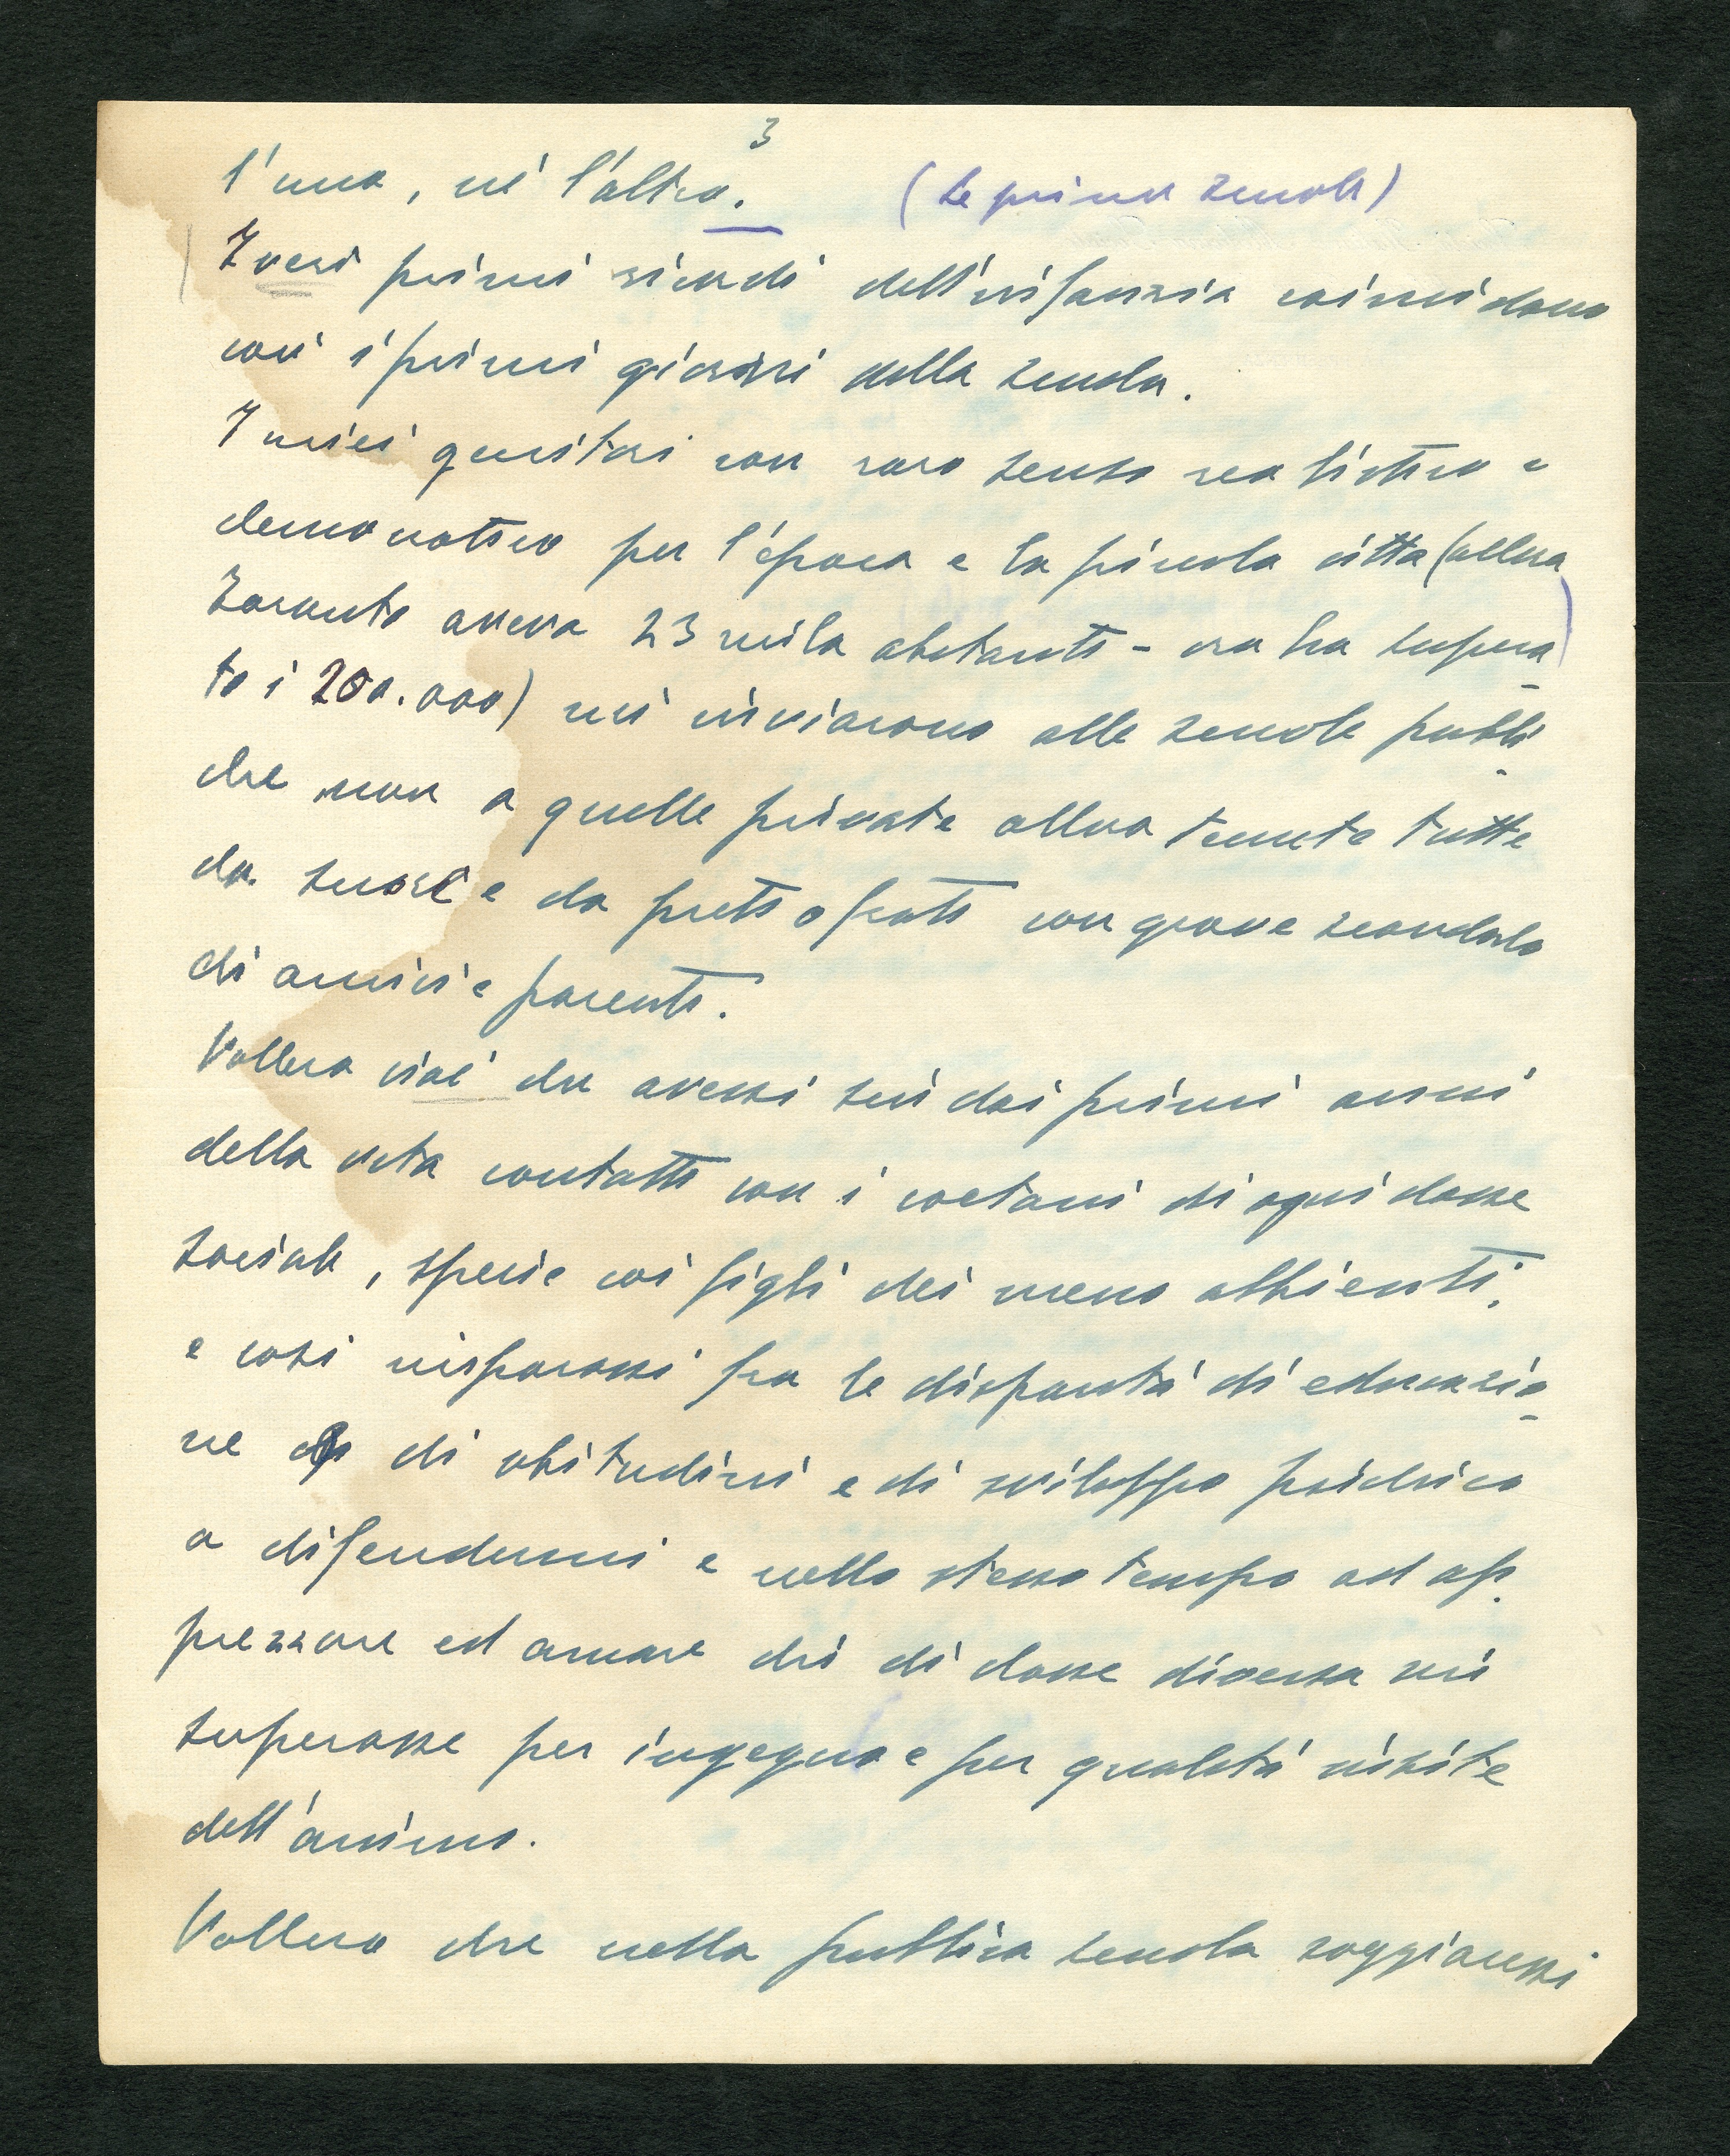 3
l'uno, né l'altro. (Le prime scuole)
I veri primi ricordi dell'infanzia coincidono
coi i primi giorni della scuola.
I miei genitori con raro senso realistico e
democratico per l'epoca e la piccola citta (allora
Taranto aveva 23 mila abitanti - ora ha supera
to i 200.000) mi inviarono alle scuole pubbli
che non a quelle private allora tenute tutte
da suore e da preti o frati con grave scandalo
di amici e parenti.
Vollero cioè che avessi sin dai primi anni
della vita contatti con i coetani di ogni classe
sociale, specie coi figli dei meno abbienti,
e così imparassi fra le disparità di educazio
ne di abitudini e di sviluppo psichico
a difendermi e nello stesso tempo ad ap
prezzare ed amare chi di classe diversa mi
superasse per ingegno e per qualità insite
dell'animo.
Vollero che nella pubblica scuola soggiacessi